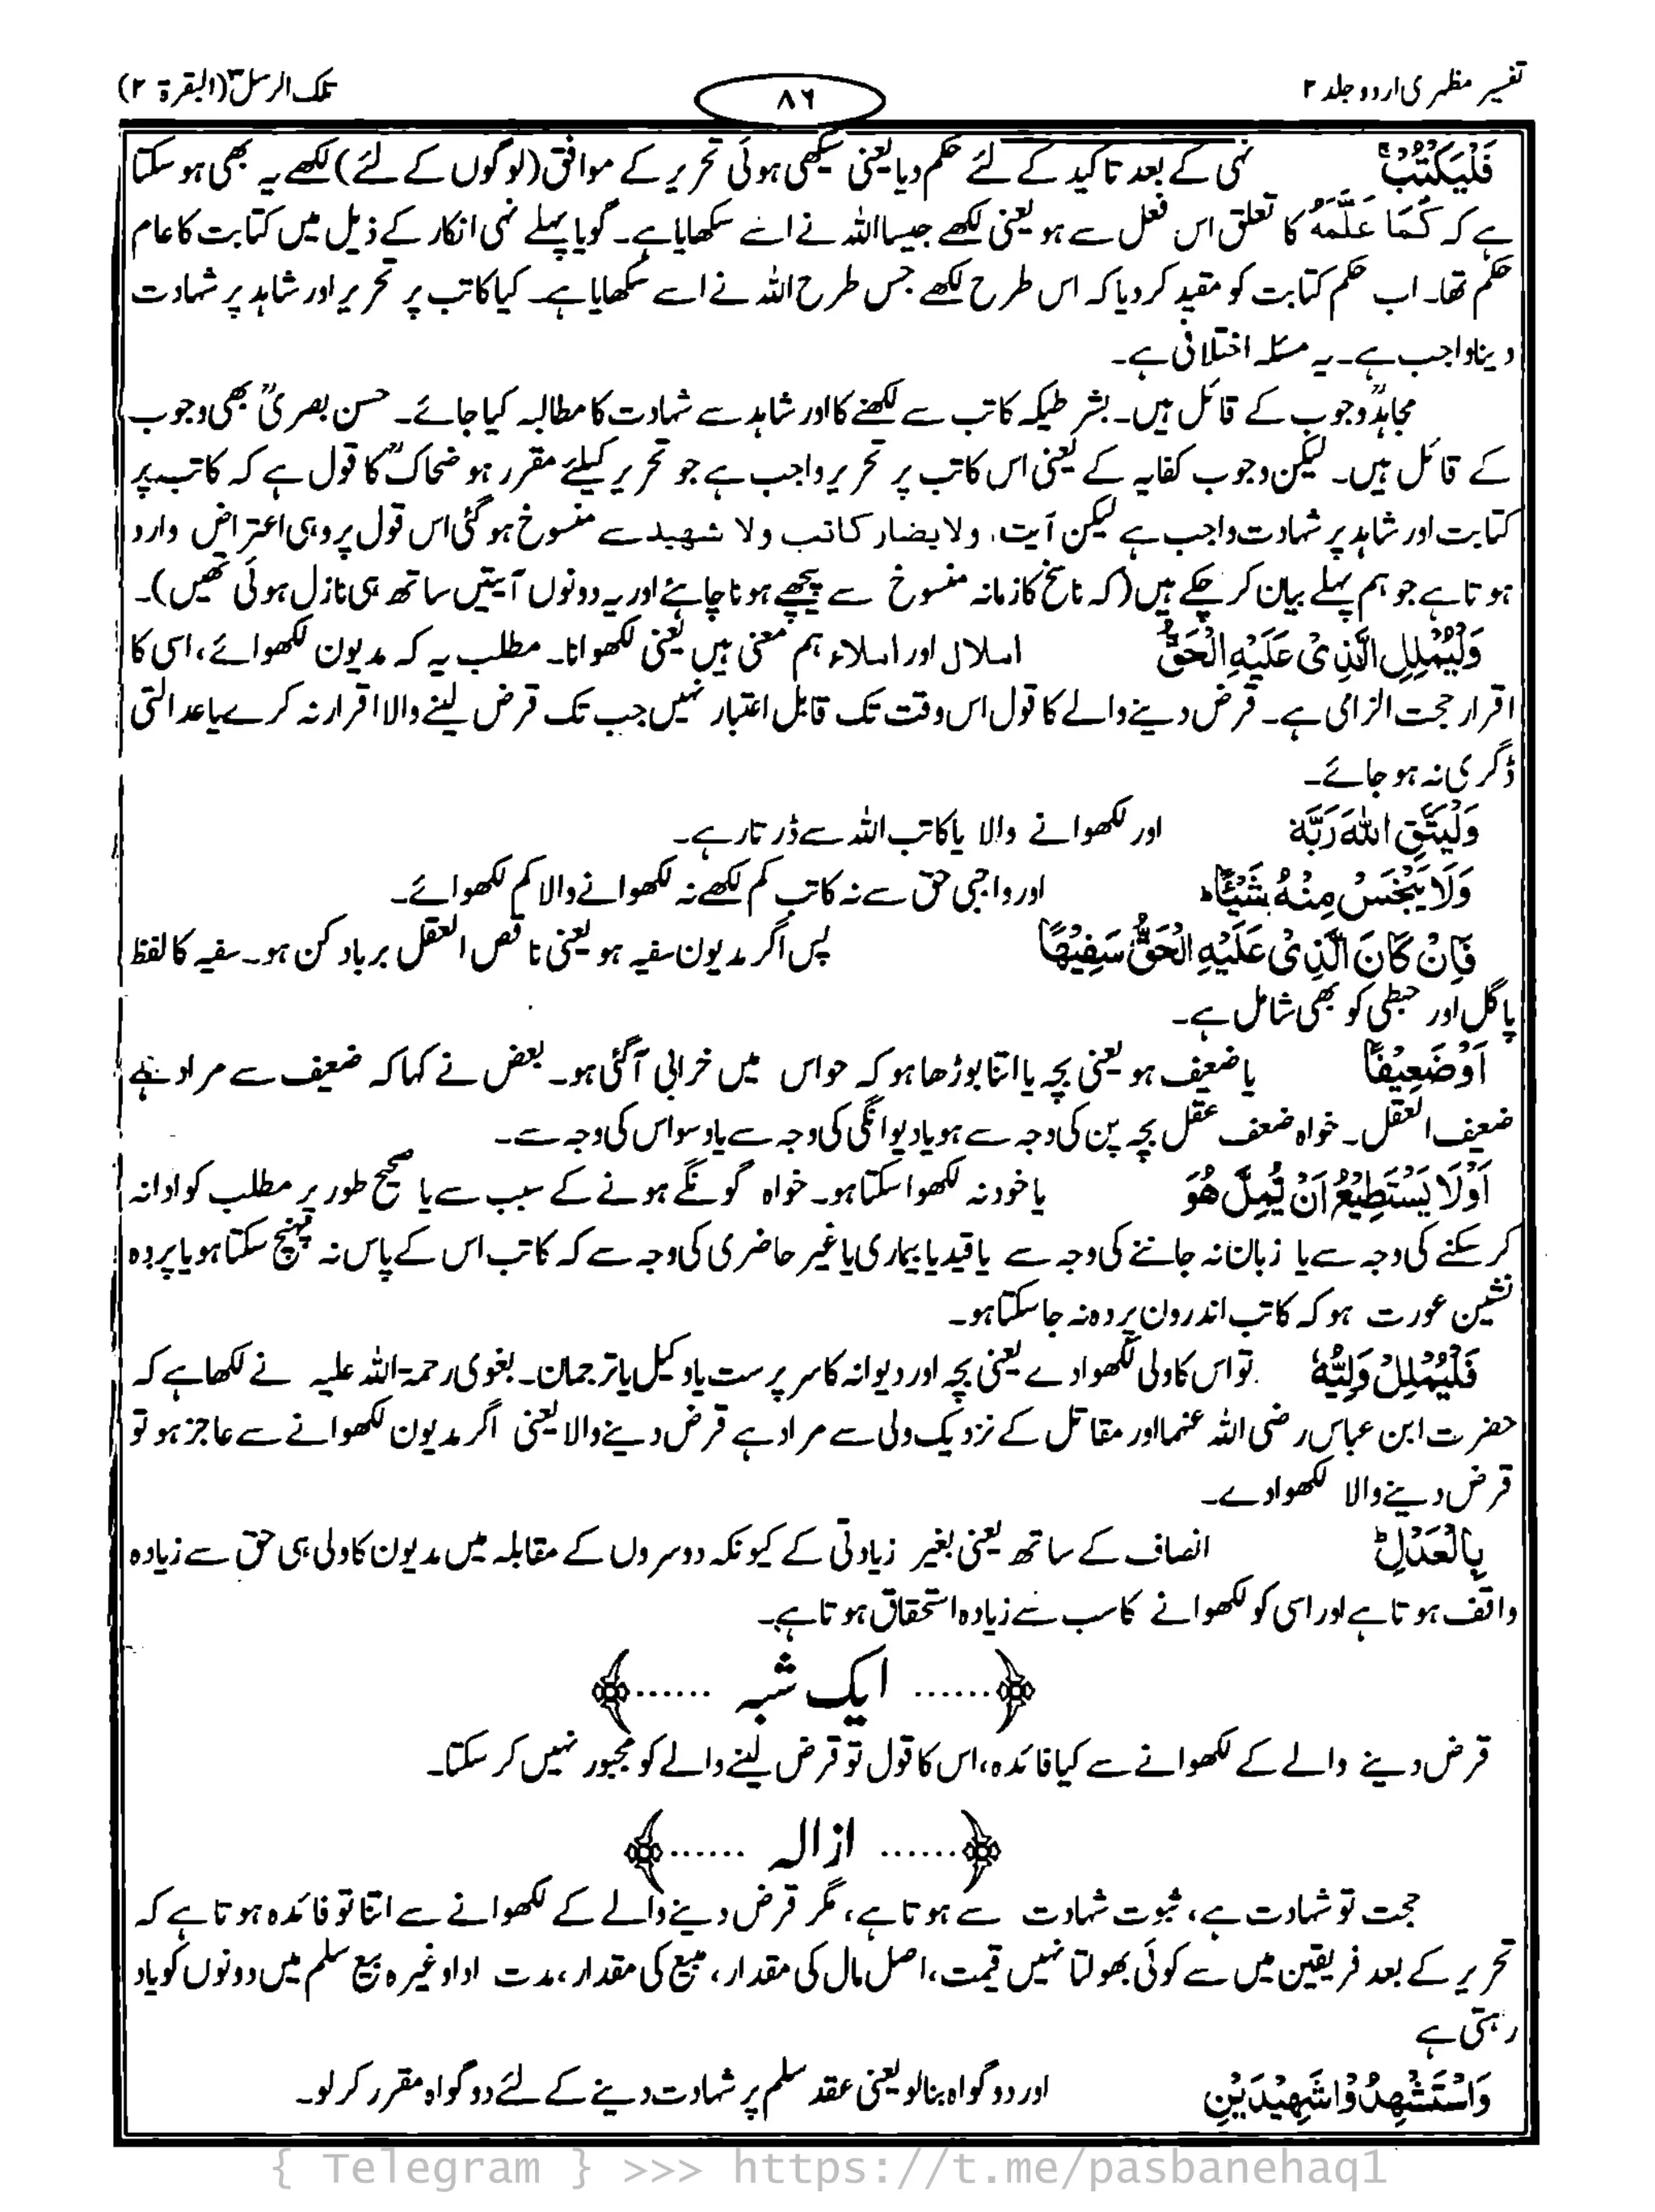 تفسیر مظہری اردو جلد ۲
۸۶
تلک الرسل ۳ (البقرۃ ۲)
فَلْيَكْتُبْ ۚ نہی کے بعد تاکید کے لئے حکم دیا یعنی سیکھی ہوئی تحریر کے موافق (لوگوں کے لئے) لکھے یہ بھی ہو سکتا
ہے کہ كَمَا عَلَّمَهُ کا تعلق اس فعل سے ہو یعنی لکھے جیسا اللہ نے اسے سکھایا ہے۔ گویا پہلے نہی انکار کے ذیل میں کتابت کا عام
حکم تھا۔ اب حکم کتابت کو مقید کر دیا کہ اس طرح لکھے جس طرح اللہ نے اسے سکھایا ہے۔ کیا کاتب پر تحریر اور شاہد پر شہادت
دینا واجب ہے۔ یہ مسئلہ اختلافی ہے۔
مجاہدؒ وجوب کے قائل ہیں۔ بشرطیکہ کاتب سے لکھنے کا اور شاہد سے شہادت کا مطالبہ کیا جائے۔ حسن بصریؒ بھی وجوب
کے قائل ہیں۔ لیکن وجوب کفایہ کے یعنی اس کاتب پر تحریر واجب ہے جو تحریر کیلئے مقرر ہو ضحاکؒ کا قول ہے کہ کاتب پر
کتابت اور شاہد پر شہادت واجب ہے لیکن آیت، ولا یضار کاتب ولا شھید سے منسوخ ہو گئی اس قول پر وہی اعتراض وارد
ہوتا ہے جو ہم پہلے بیان کر چکے ہیں (کہ ناسخ کا زمانہ منسوخ سے پیچھے ہونا چاہئے اور یہ دونوں آیتیں ساتھ ہی نازل ہوئی تھیں)۔
وَلْيُمْلِلِ الَّذِىْ عَلَيْهِ الْحَقُّ املال اور املاء ہم معنی ہیں یعنی لکھوانا۔ مطلب یہ کہ مدیون لکھوائے، اسی کا
اقرار حجت الزامی ہے۔ قرض دینے والے کا قول اس وقت تک قابل اعتبار نہیں جب تک قرض لینے والا اقرار نہ کرے یا عدالتی
ڈگری نہ ہو جائے۔
وَلْيَتَّقِ اللّٰهَ رَبَّهٗ اور لکھوانے والا یا کاتب اللہ سے ڈرتا رہے۔
وَلَا يَبْخَسْ مِنْهُ شَيْئًا ؕ اور واجبی حق سے نہ کاتب کم لکھے نہ لکھوانے والا کم لکھوائے۔
فَاِنْ كَانَ الَّذِىْ عَلَيْهِ الْحَقُّ سَفِيْهًا پس اگر مدیون سفیہ ہو یعنی ناقص العقل برباد کن ہو۔ سفیہ کا لفظ
پاگل اور خبطی کو بھی شامل ہے۔
اَوْ ضَعِيْفًا یا ضعیف ہو یعنی بچہ یا اتنا بوڑھا ہو کہ حواس میں خرابی آگئی ہو۔ بعض نے کہا کہ ضعیف سے مراد ہے
ضعیف العقل۔ خواہ ضعف عقل بچہ پن کی وجہ سے ہو یا دیوانگی کی وجہ سے یا وسواس کی وجہ سے۔
اَوْ لَا يَسْتَطِيْعُ اَنْ يُّمِلَّ هُوَ یا خود نہ لکھوا سکتا ہو۔ خواہ گونگے ہونے کے سبب سے یا صحیح طور پر مطلب کو ادا نہ
کر سکنے کی وجہ سے یا زبان نہ جاننے کی وجہ سے یا قید یا بیماری یا غیر حاضری کی وجہ سے کہ کاتب اس کے پاس نہ پہنچ سکتا ہو یا پردہ
نشین عورت ہو کہ کاتب اندرون پردہ نہ جا سکتا ہو۔
فَلْيُمْلِلْ وَلِيُّهٗ تو اس کا ولی لکھوا دے یعنی بچہ اور دیوانہ کا سرپرست یا وکیل یا ترجمان۔ بغوی رحمۃ اللہ علیہ نے لکھا ہے کہ
حضرت ابن عباس رضی اللہ عنہما اور مقاتل کے نزدیک ولی سے مراد ہے قرض دینے والا یعنی اگر مدیون لکھوانے سے عاجز ہو تو
قرض دینے والا لکھوا دے۔
بِالْعَدْلِ ؕ انصاف کے ساتھ یعنی بغیر زیادتی کے کیونکہ دوسروں کے مقابلہ میں مدیون کا ولی ہی حق سے زیادہ
واقف ہوتا ہے اور اسی کو لکھوانے کا سب سے زیادہ استحقاق ہوتا ہے۔
﴿...... ایک شبہ ......﴾
قرض دینے والے کے لکھوانے سے کیا فائدہ، اس کا قول تو قرض لینے والے کو مجبور نہیں کر سکتا۔
﴿...... ازالہ ......﴾
حجت تو شہادت ہے، ثبوت شہادت سے ہوتا ہے، مگر قرض دینے والے کے لکھوانے سے اتنا تو فائدہ ہوتا ہے کہ
تحریر کے بعد فریقین میں سے کوئی بھولتا نہیں قیمت، اصل مال کی مقدار، مبیع کی مقدار، مدت ادا وغیرہ بیع سلم میں دونوں کو یاد
رہتی ہے
وَاسْتَشْهِدُوْا شَهِيْدَيْنِ اور دو گواہ بنالو یعنی عقد سلم پر شہادت دینے کے لئے دو گواہ مقرر کر لو۔
{ Telegram } >>> https://t.me/pasbanehaq1